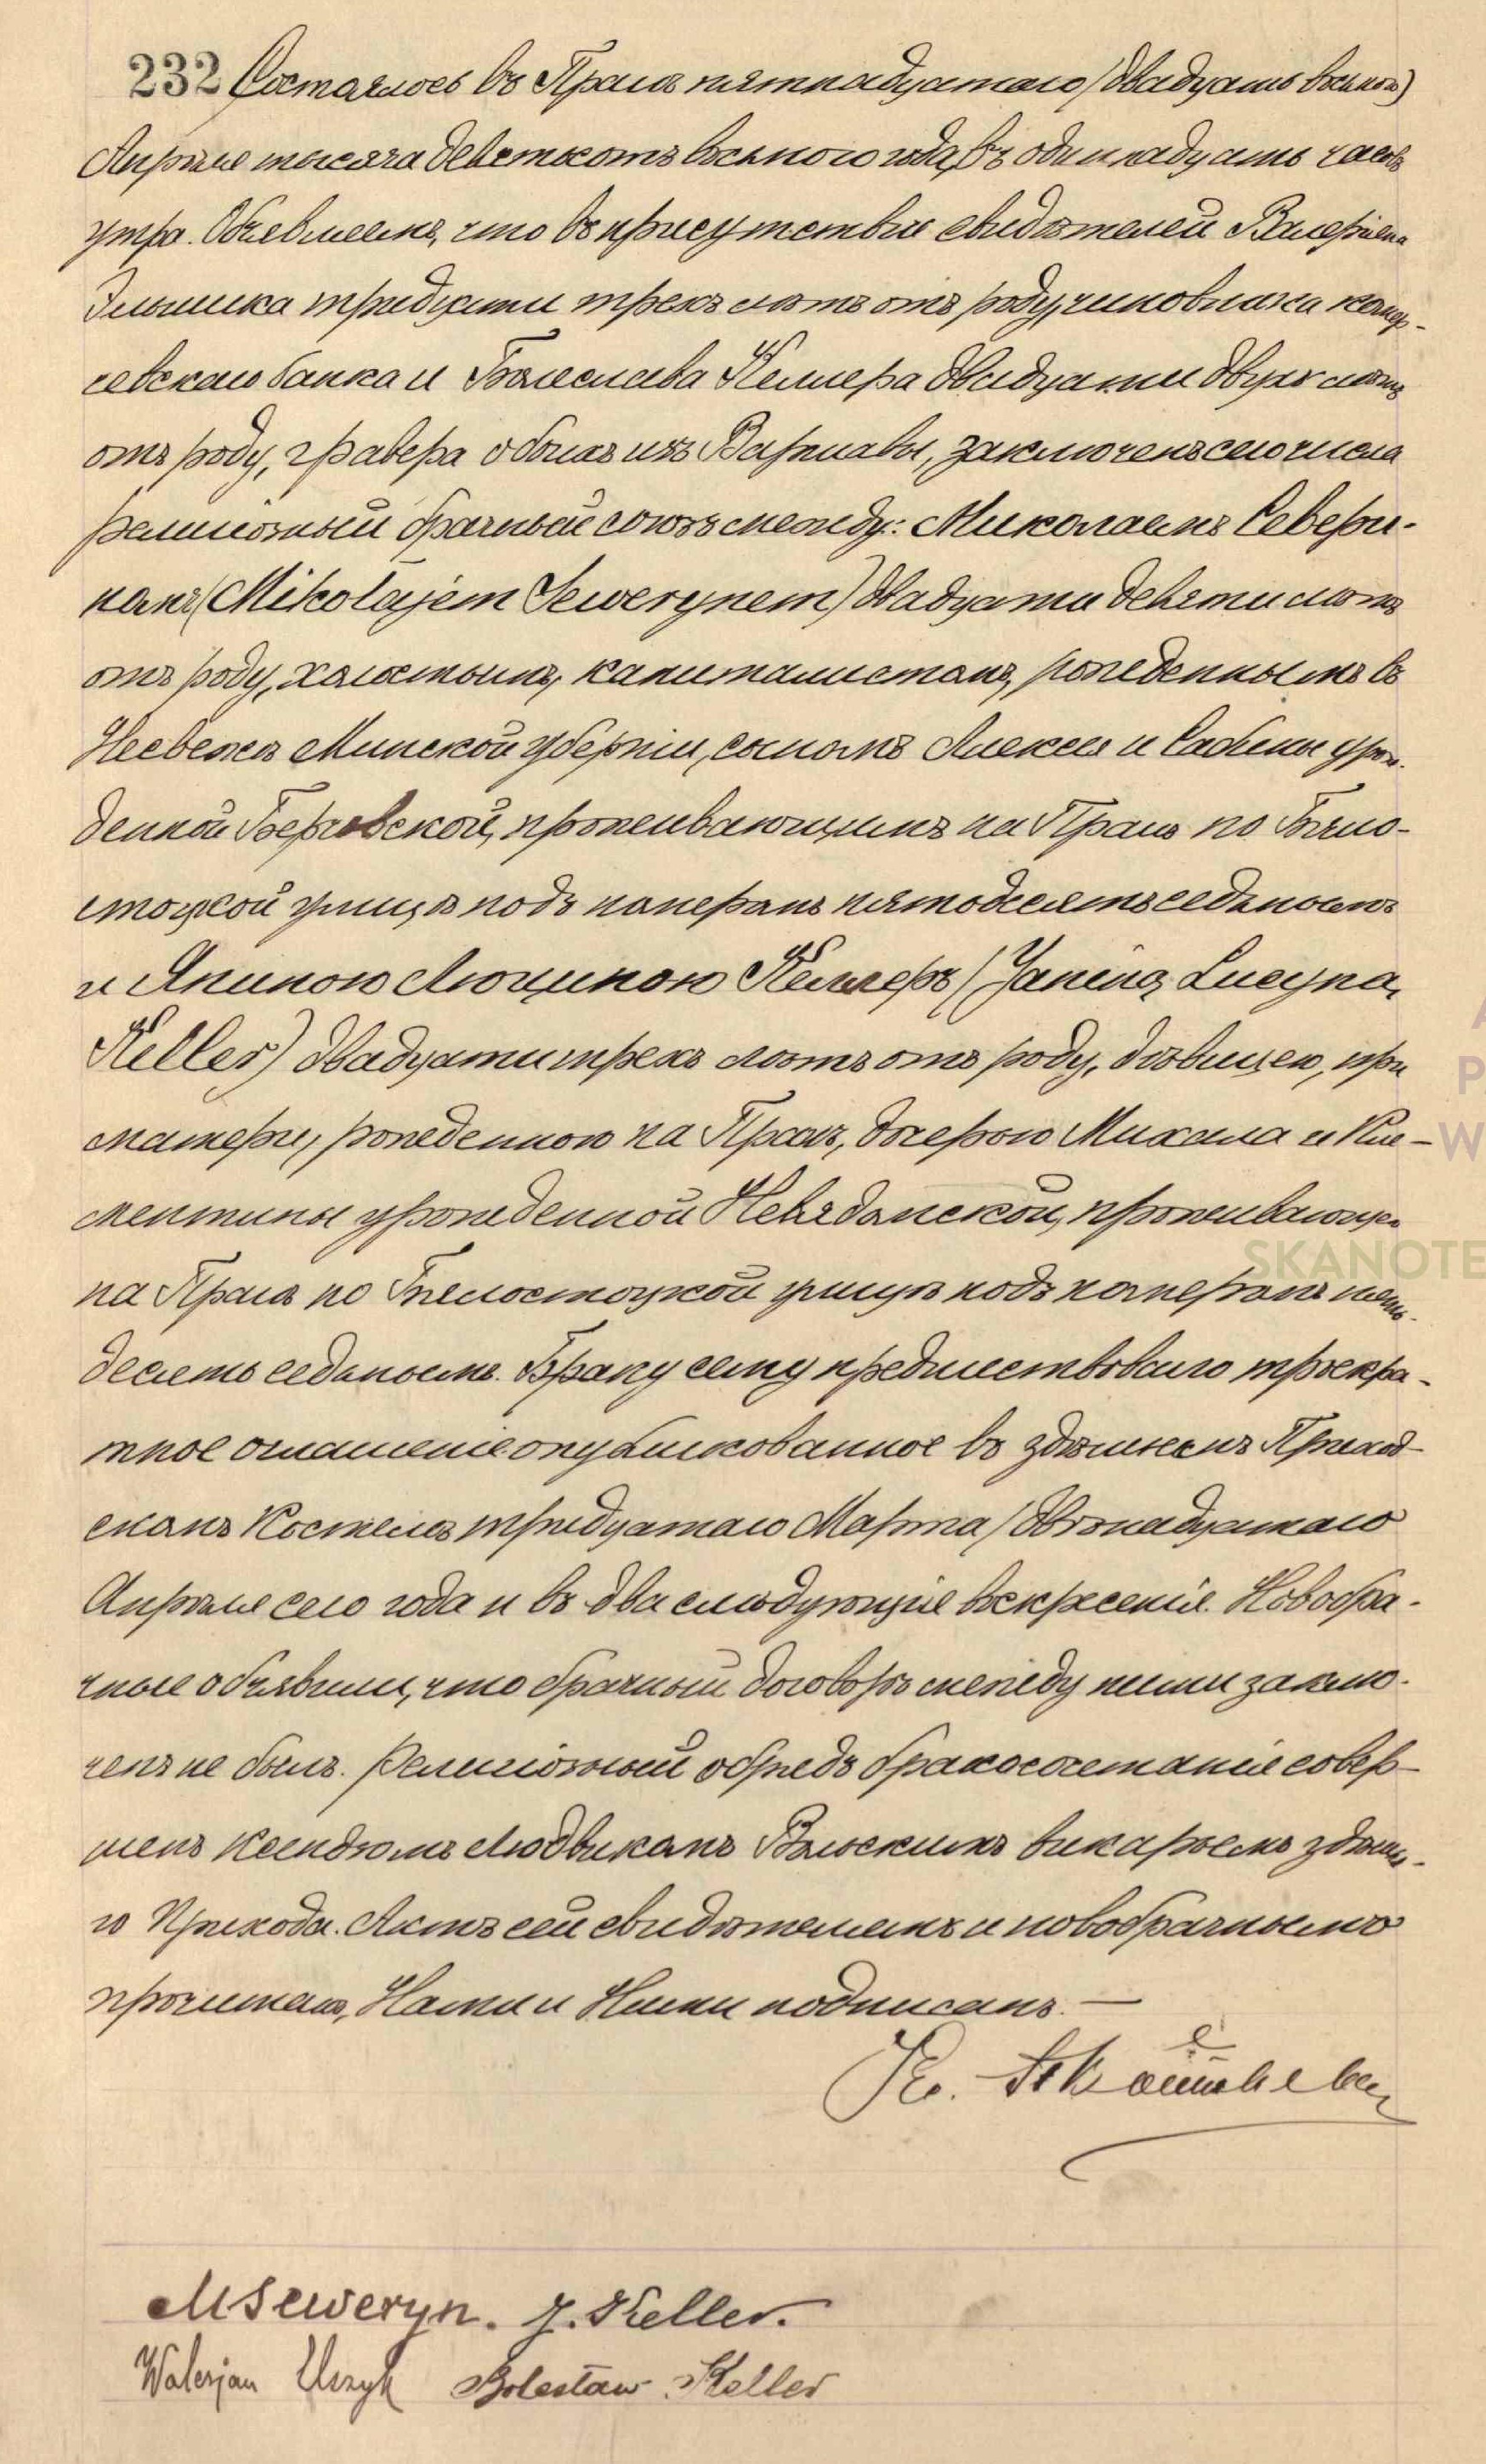 232 Состоялось въ Праге пятнадцатаго (двадцать восьмого)
Апрѣля тысяча девятьсотъ восьмого года, въ одиннадцать часовъ
утра. Объявляемъ, что въ присутствіи свидѣтелей Валеріяна
тридцати трехъ лѣтъ отъ роду, чиновника
банка и Болеслава Келлера двадцати двухъ лѣтъ
отъ роду, гравера обоихъ изъ Варшавы, заключенъ сего числа
религіозный брачный союзъ между: Миколаемъ Севери-
номъ (Mikołajem Sewerynem) двадцати девяти лѣтъ
отъ роду, холостымъ, капиталистомъ, рожденнымъ въ
Несвежѣ Минской губерніи, сыномъ Алексея и Сабины урож-
денной проживающимъ на Праге по Бѣло-
стоцкой улицѣ подъ номеромъ пятьдесятъ седьмымъ
и Яниною Люциною Келлеръ (Janiną Lucyną
Keller) двадцати трехъ лѣтъ отъ роду, дѣвицею, при
матери, рожденною на Праге, дочерью Михала и Кле-
ментины урожденной проживающею
на Праге по Бѣлостоцкой улицѣ подъ номеромъ пять-
десятъ седьмымъ. Браку сему предшествовало троекра-
тное оглашеніе опубликованное въ здѣшнемъ Приход-
скомъ Костелѣ тридцатаго Марта (двѣнадцатаго
Апрѣля сего года и въ два слѣдующія воскресенія. Новобра-
чные объявили, что брачный договоръ между ними заклю-
ченъ не былъ. Религіозный обрядъ бракосочетанія совер-
шенъ Ксендзомъ Людвикомъ викаріемъ здѣшня-
го Прихода. Актъ сей свидѣтелямъ и новобрачнымъ
прочитанъ, Нами и Ними подписанъ. —
M Seweryn. J. Keller.
Walerjan Bolesław Keller
SKANOTE
A
P
W